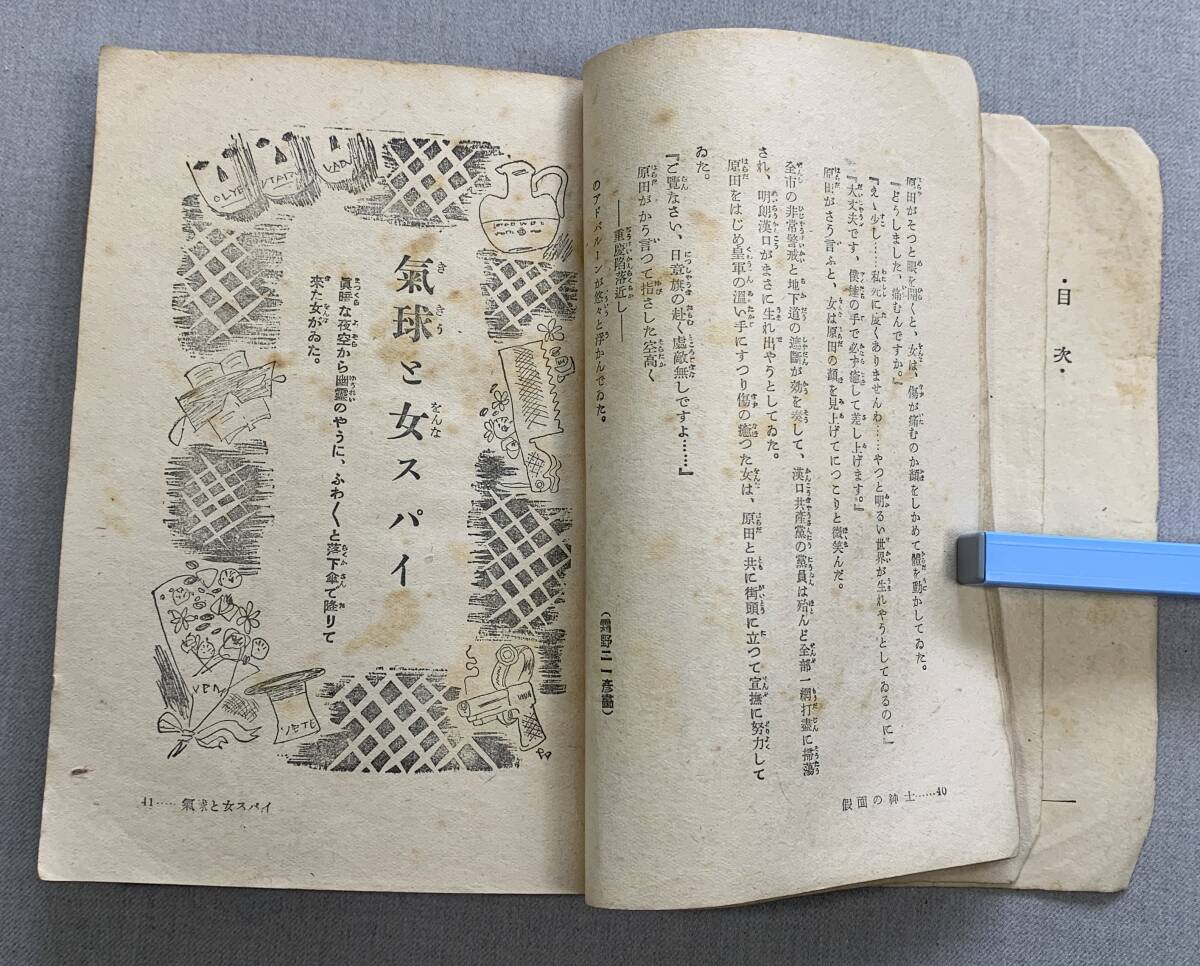 ・目次・
原田がそつと眼を開くと、女は、傷が痛むのか顔をしかめて體を動かしてゐた。
『どうしました、痛むんですか。』
『えゝ少し……私死に度くありませんわ……やつと明るい世界が生れやうとしてゐるのに』
『大丈夫です、僕達の手で必ず癒して差し上げます。』
原田がさう言ふと、女は原田の顔を見上げてにつこりと微笑んだ。
全市の非常警戒と地下道の遮斷が効を奏して、漢口共産黨の黨員は殆んど全部一網打盡に掃蕩
され、明朗漢口がまさに生れ出やうとしてゐた。
原田をはじめ皇軍の溫い手にすつり傷の癒つた女は、原田と共に街頭に立つて宣撫に努力して
ゐた。
『ご覽なさい、日章旗の赴く處敵無しですよ……』
原田がかう言つて指さした空高く
――重慶陷落近し――
のアドバルーンが悠々と浮かんでゐた。
假面の紳士……40
氣球と女スパイ
眞暗な夜空から幽靈のやうに、ふわ〳〵と落下傘で降りて
來た女がゐた。
41……氣球と女スパイ